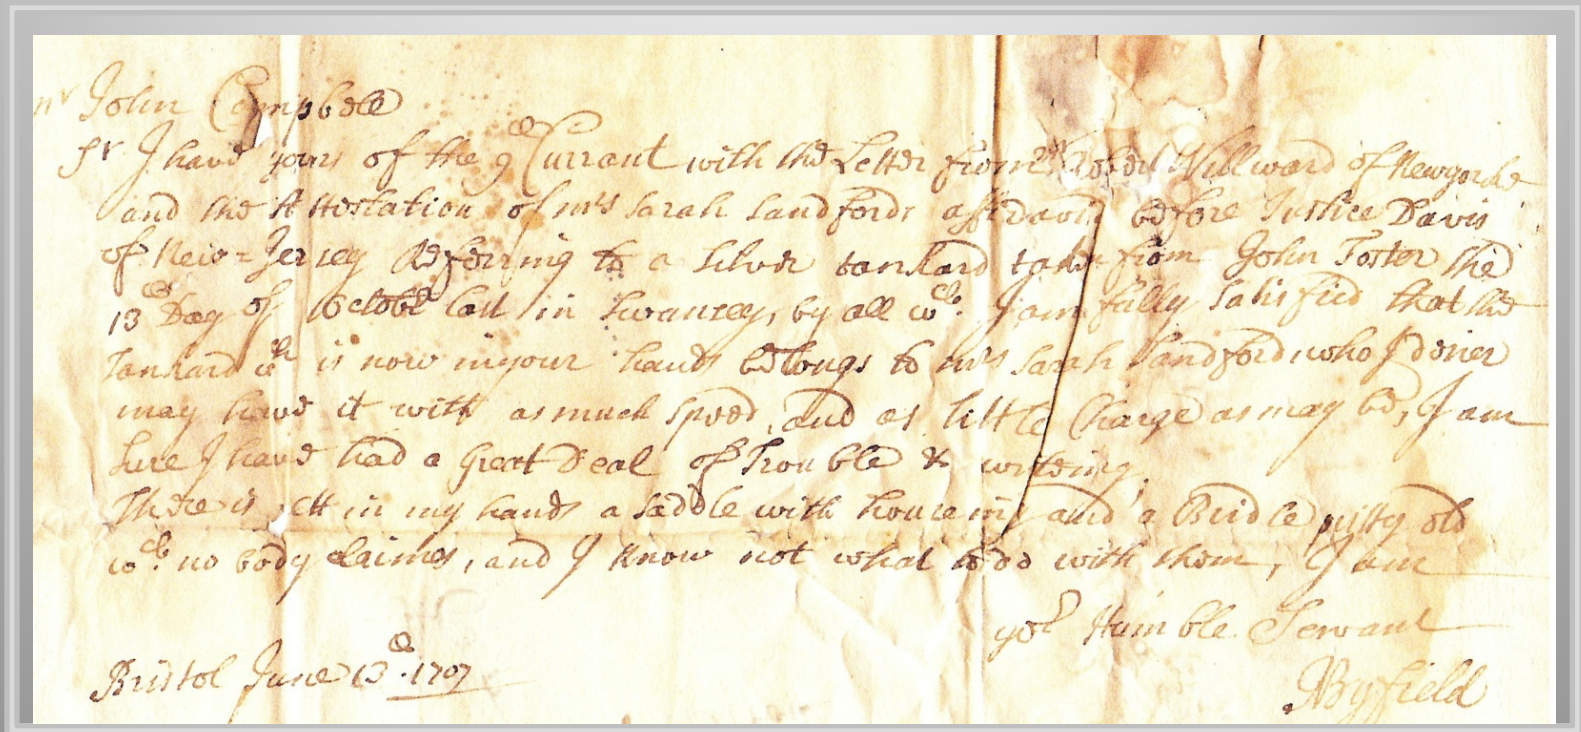 mr John Campbell
Sr I have yours of the 9th Currant with the Letter from mr Robert Millward of Newyorke
and the Attestation of mrs Sarah Sandfords affidavid before Justice Davis
of New=Jersey Referring to a silver tankard taken from John Foster the
13th Day of Octobr last in Swansey, by all wch. I am fully satisfied that the
Tankard wch is now in your hands belongs to mrs Sarah Sandford, who I desier
may have it with as much speed, and as little Charge as may be, I am
sure I have had a great Deal of Trouble & writeing,
There is yett in my hands a saddle with houseing and a Bridle pitty old
wch. no body claimes, and I know not what to do with them, I am
yor Humble Servant
Bristol June 13th. 1707
NByfield